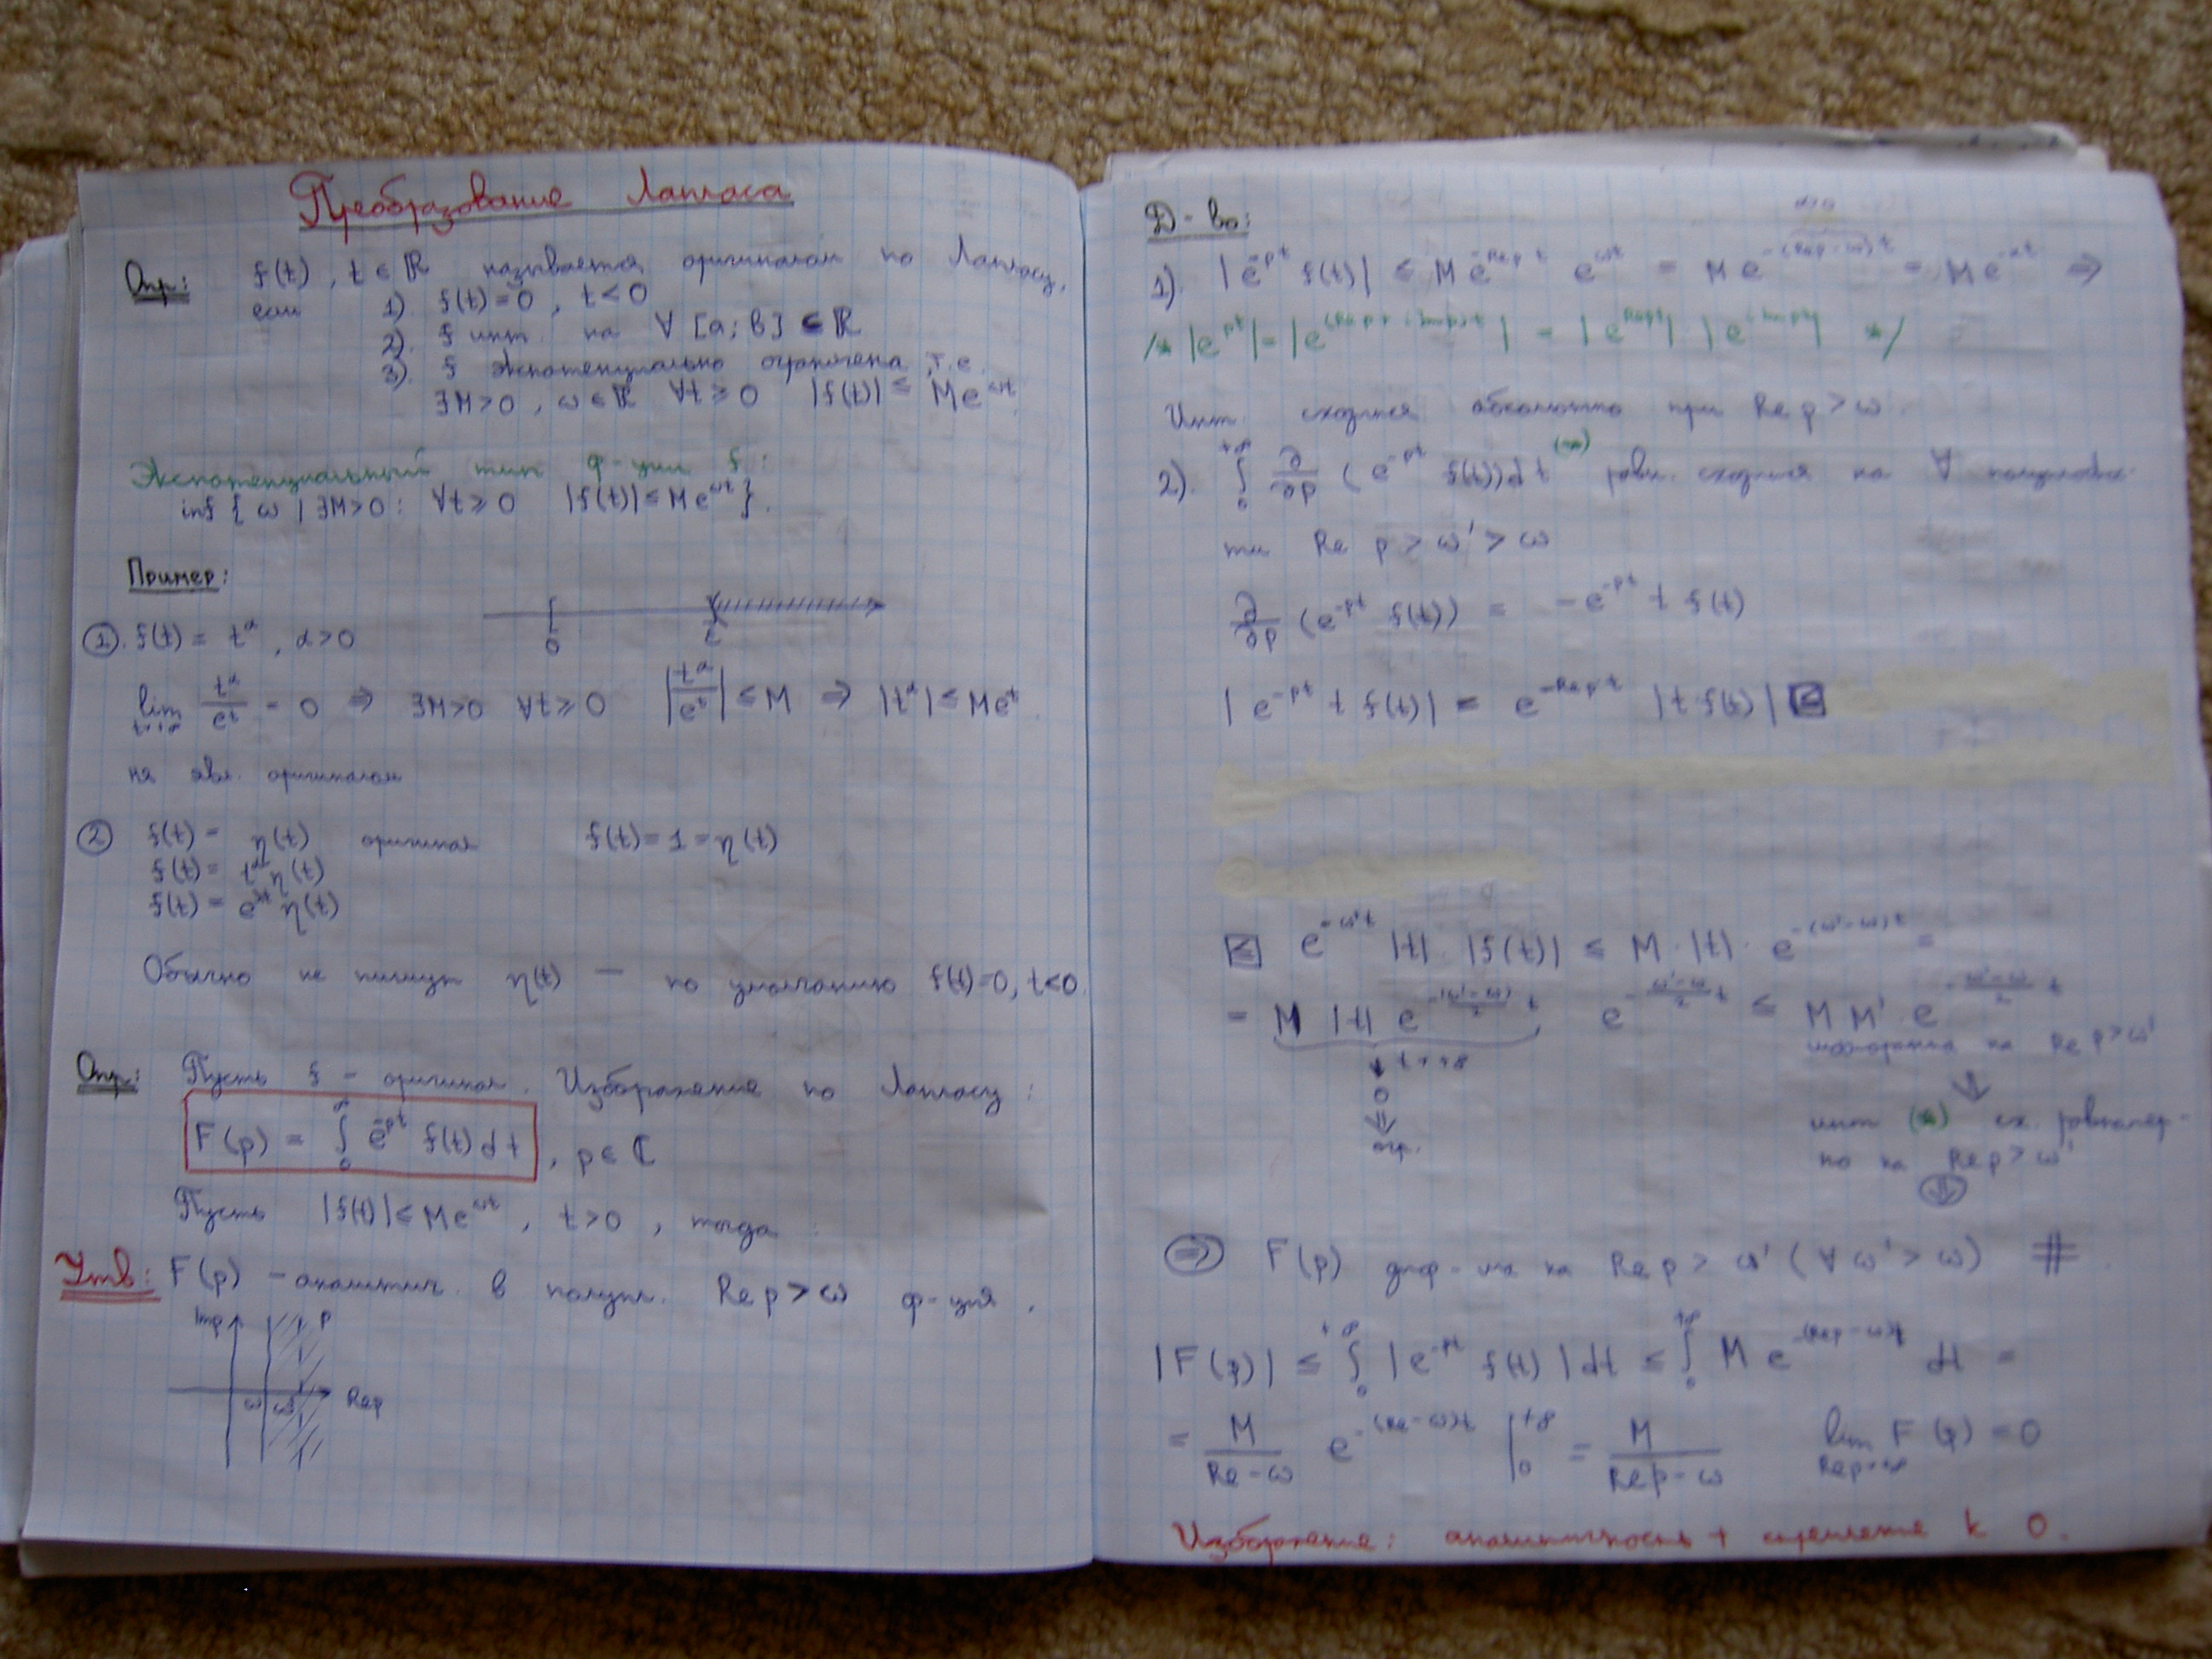 Преобразование Лапласа
Опр: f(t), t ∈ ℝ называется оригиналом по Лапласу,
если 1). f(t)=0, t<0
2). f инт. на ∀ [a; b] ⊂ ℝ
3). f экспотенциально ограничена, т.е.
∃M>0, ω∈ℝ ∀t≥0 |f(t)| ≤ Me^{ωt}
Экспотенциальный тип ф-ции f:
inf { ω | ∃M>0: ∀t≥0 |f(t)|≤Me^{ωt} }.
Пример:
0
①. f(t) = t^α, α>0
lim t^α/e^t = 0 ⇒ ∃M>0 ∀t≥0 |t^α/e^t| ≤ M ⇒ |t^α| ≤ Me^t.
не явл. оригиналом
② f(t) = η(t) оригинал f(t)=1=η(t)
f(t) = t^α η(t)
f(t) = e^{λt} η(t)
Обычно не пишут η(t) — по умолчанию f(t)=0, t<0.
Опр: Пусть f – оригинал. Изображение по Лапласу:
F(p) = ∫_0^∞ e^{-pt} f(t) dt, p∈ℂ
Пусть |f(t)| ≤ Me^{ωt}, t>0, тогда
Утв: F(p) – аналитич. в полупл. Re p > ω ф-ция.
Im p P
ω ω' Re p
Д-во:
α>0
1). |e^{-pt} f(t)| ≤ M e^{-Re p t} e^{ωt} = M e^{-(Re p-ω)t} = M e^{-αt} ⇒
/* |e^{pt}| = |e^{(Re p + i Im p)t}| = |e^{Re pt}| |e^{i Im pt}| */
Инт. сходится абсолютно при Re p > ω.
2). ∫_0^{+∞} ∂/∂p (e^{-pt} f(t)) dt (*) равн. сходится на ∀ полуплоск-
ти Re p > ω' > ω
∂/∂p (e^{-pt} f(t)) = -e^{-pt} t f(t)
|e^{-pt} t f(t)| = e^{-Re p t} |t f(t)| ≤
≤ e^{-ω't} |t| · |f(t)| ≤ M · |t| · e^{-(ω'-ω)t} =
= M |t| e^{-(ω'-ω)/2 t} e^{-(ω'-ω)/2 t} ≤ M M' e^{-(ω'-ω)/2 t}
мажоранта на Re p > ω'
↓ t→+∞
0
⇓
огр.
⇓
инт (*) сх. равномер-
но на Re p > ω'
⇓
⇒ F(p) диф-ма на Re p > ω' (∀ ω' > ω) #
|F(p)| ≤ ∫_0^{+∞} |e^{-pt} f(t)| dt ≤ ∫_0^{+∞} M e^{-(Re p-ω)t} dt =
= M/(Re-ω) e^{-(Re-ω)t} |_0^{+∞} = M/(Re p-ω) lim_{Re p→∞} F(p) = 0
Изображение: аналитичность + стремление к 0.